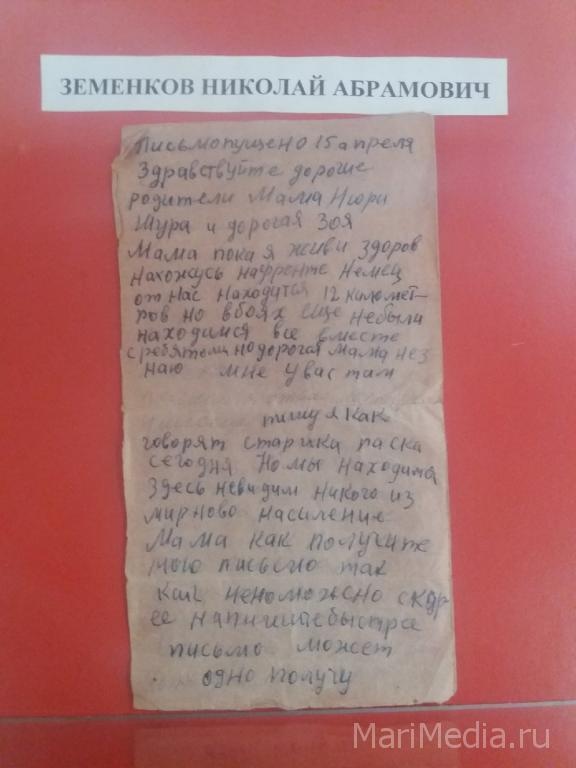 ЗЕМЕНКОВ НИКОЛАЙ АБРАМОВИЧ
Письмо пущено 15 апреля
Здравствуйте дорогие
родители Мама Нюри
Шура и дорогая Зоя
Мама пока я живи здоров
нахожусь нафронте Немец
от нас находится 12 километ-
ров но вбоях еще небыли
находимся все вместе
сребятами нодорогая мама нез
наю мне увас там
пишу я как
говорят старики паска
сегодня Но мы находимся
здесь невидим никого из
мирново насиления
Мама как получите
мою письмо так
как неможно скор
ее напишитебыстрее
письмо может
одно получу
MariMedia.ru